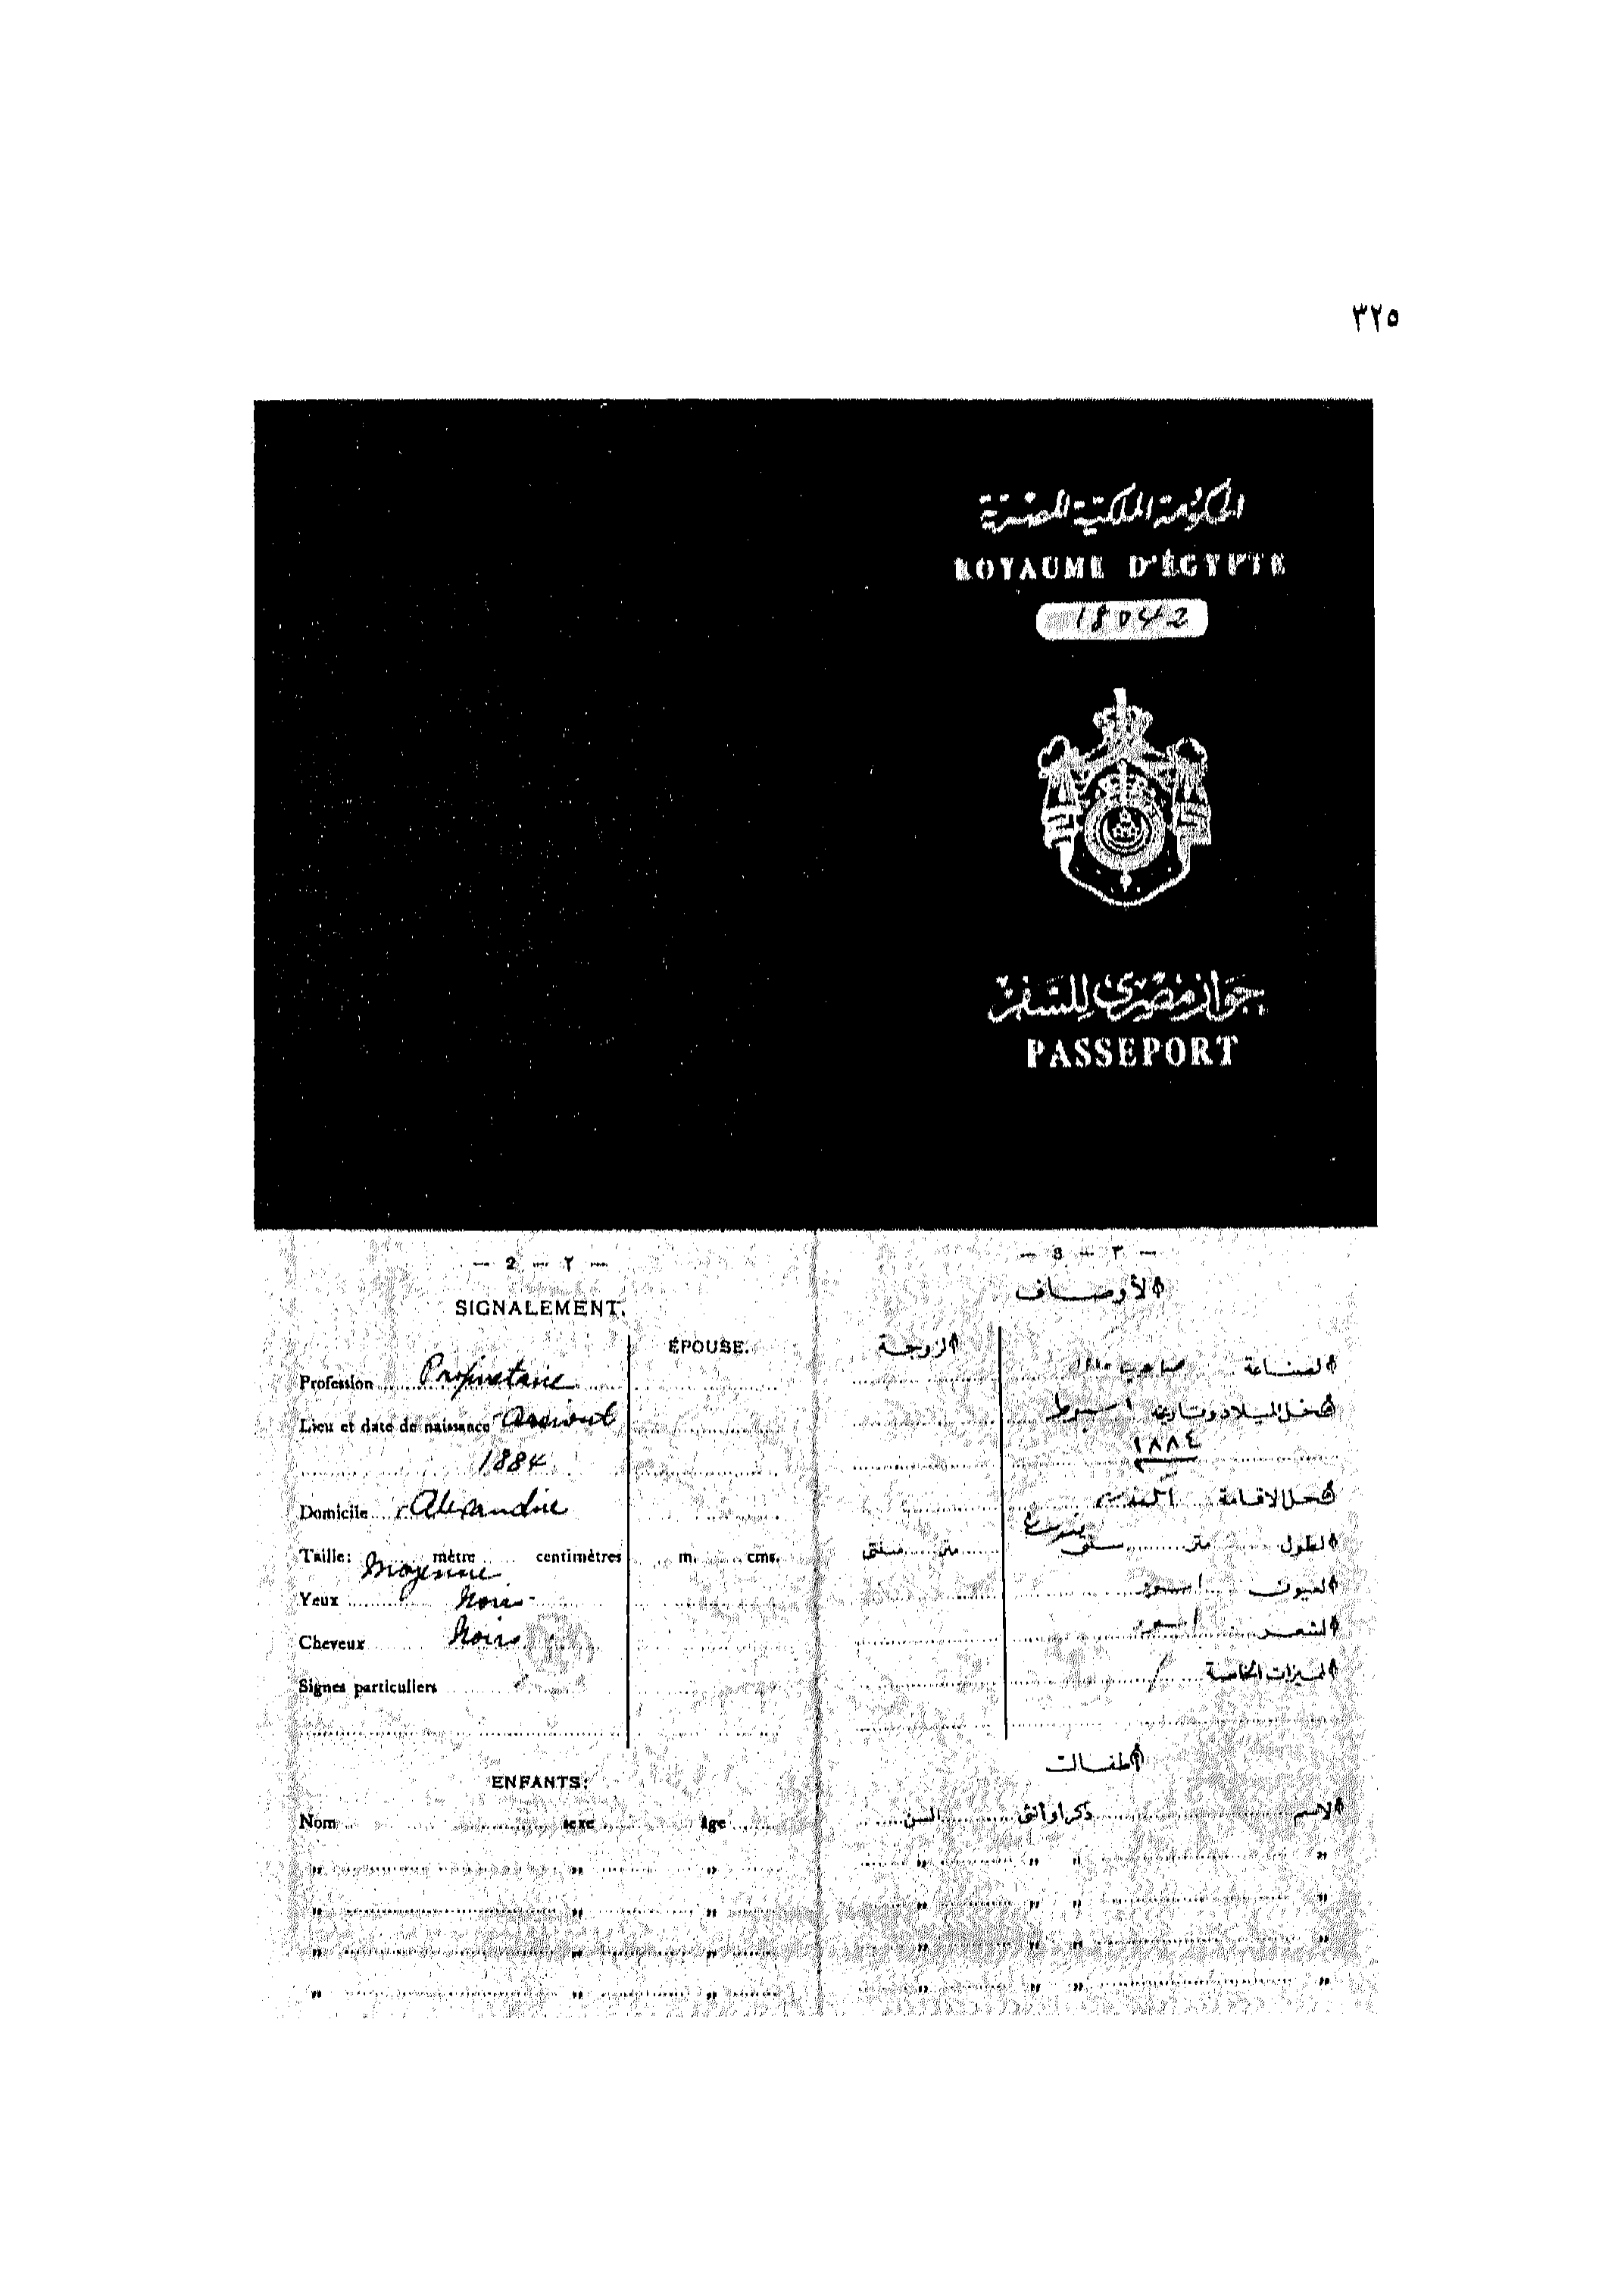 ٣٢٥
الحكومة الملكية المصرية
ROYAUME D'ÉGYPTE
18042
جواز مصرى للسفر
PASSEPORT
— 2 — ٢ —
SIGNALEMENT.
ÉPOUSE.
Profession Propriétaire
Lieu et date de naissance Assiout
1884
Domicile Alexandrie
Taille: Moyenne mètre centimètres m. cms.
Yeux Noirs
Cheveux Noirs
Signes particuliers
ENFANTS:
Nom sexe âge
" " "
" " "
" " "
" " "
— 3 — ٣ —
الأوصاف
الزوجة
الصناعة صاحب
محل الميلاد وتاريخه اسيوط
١٨٨٤
محل الاقامة
الطول متر سنتى متر سنتى
العيون اسود
الشعر اسود
المميزات الخاصة /
أطفال
الاسم ذكر او انثى السن
" " " "
" " " "
" " " "
" " " "